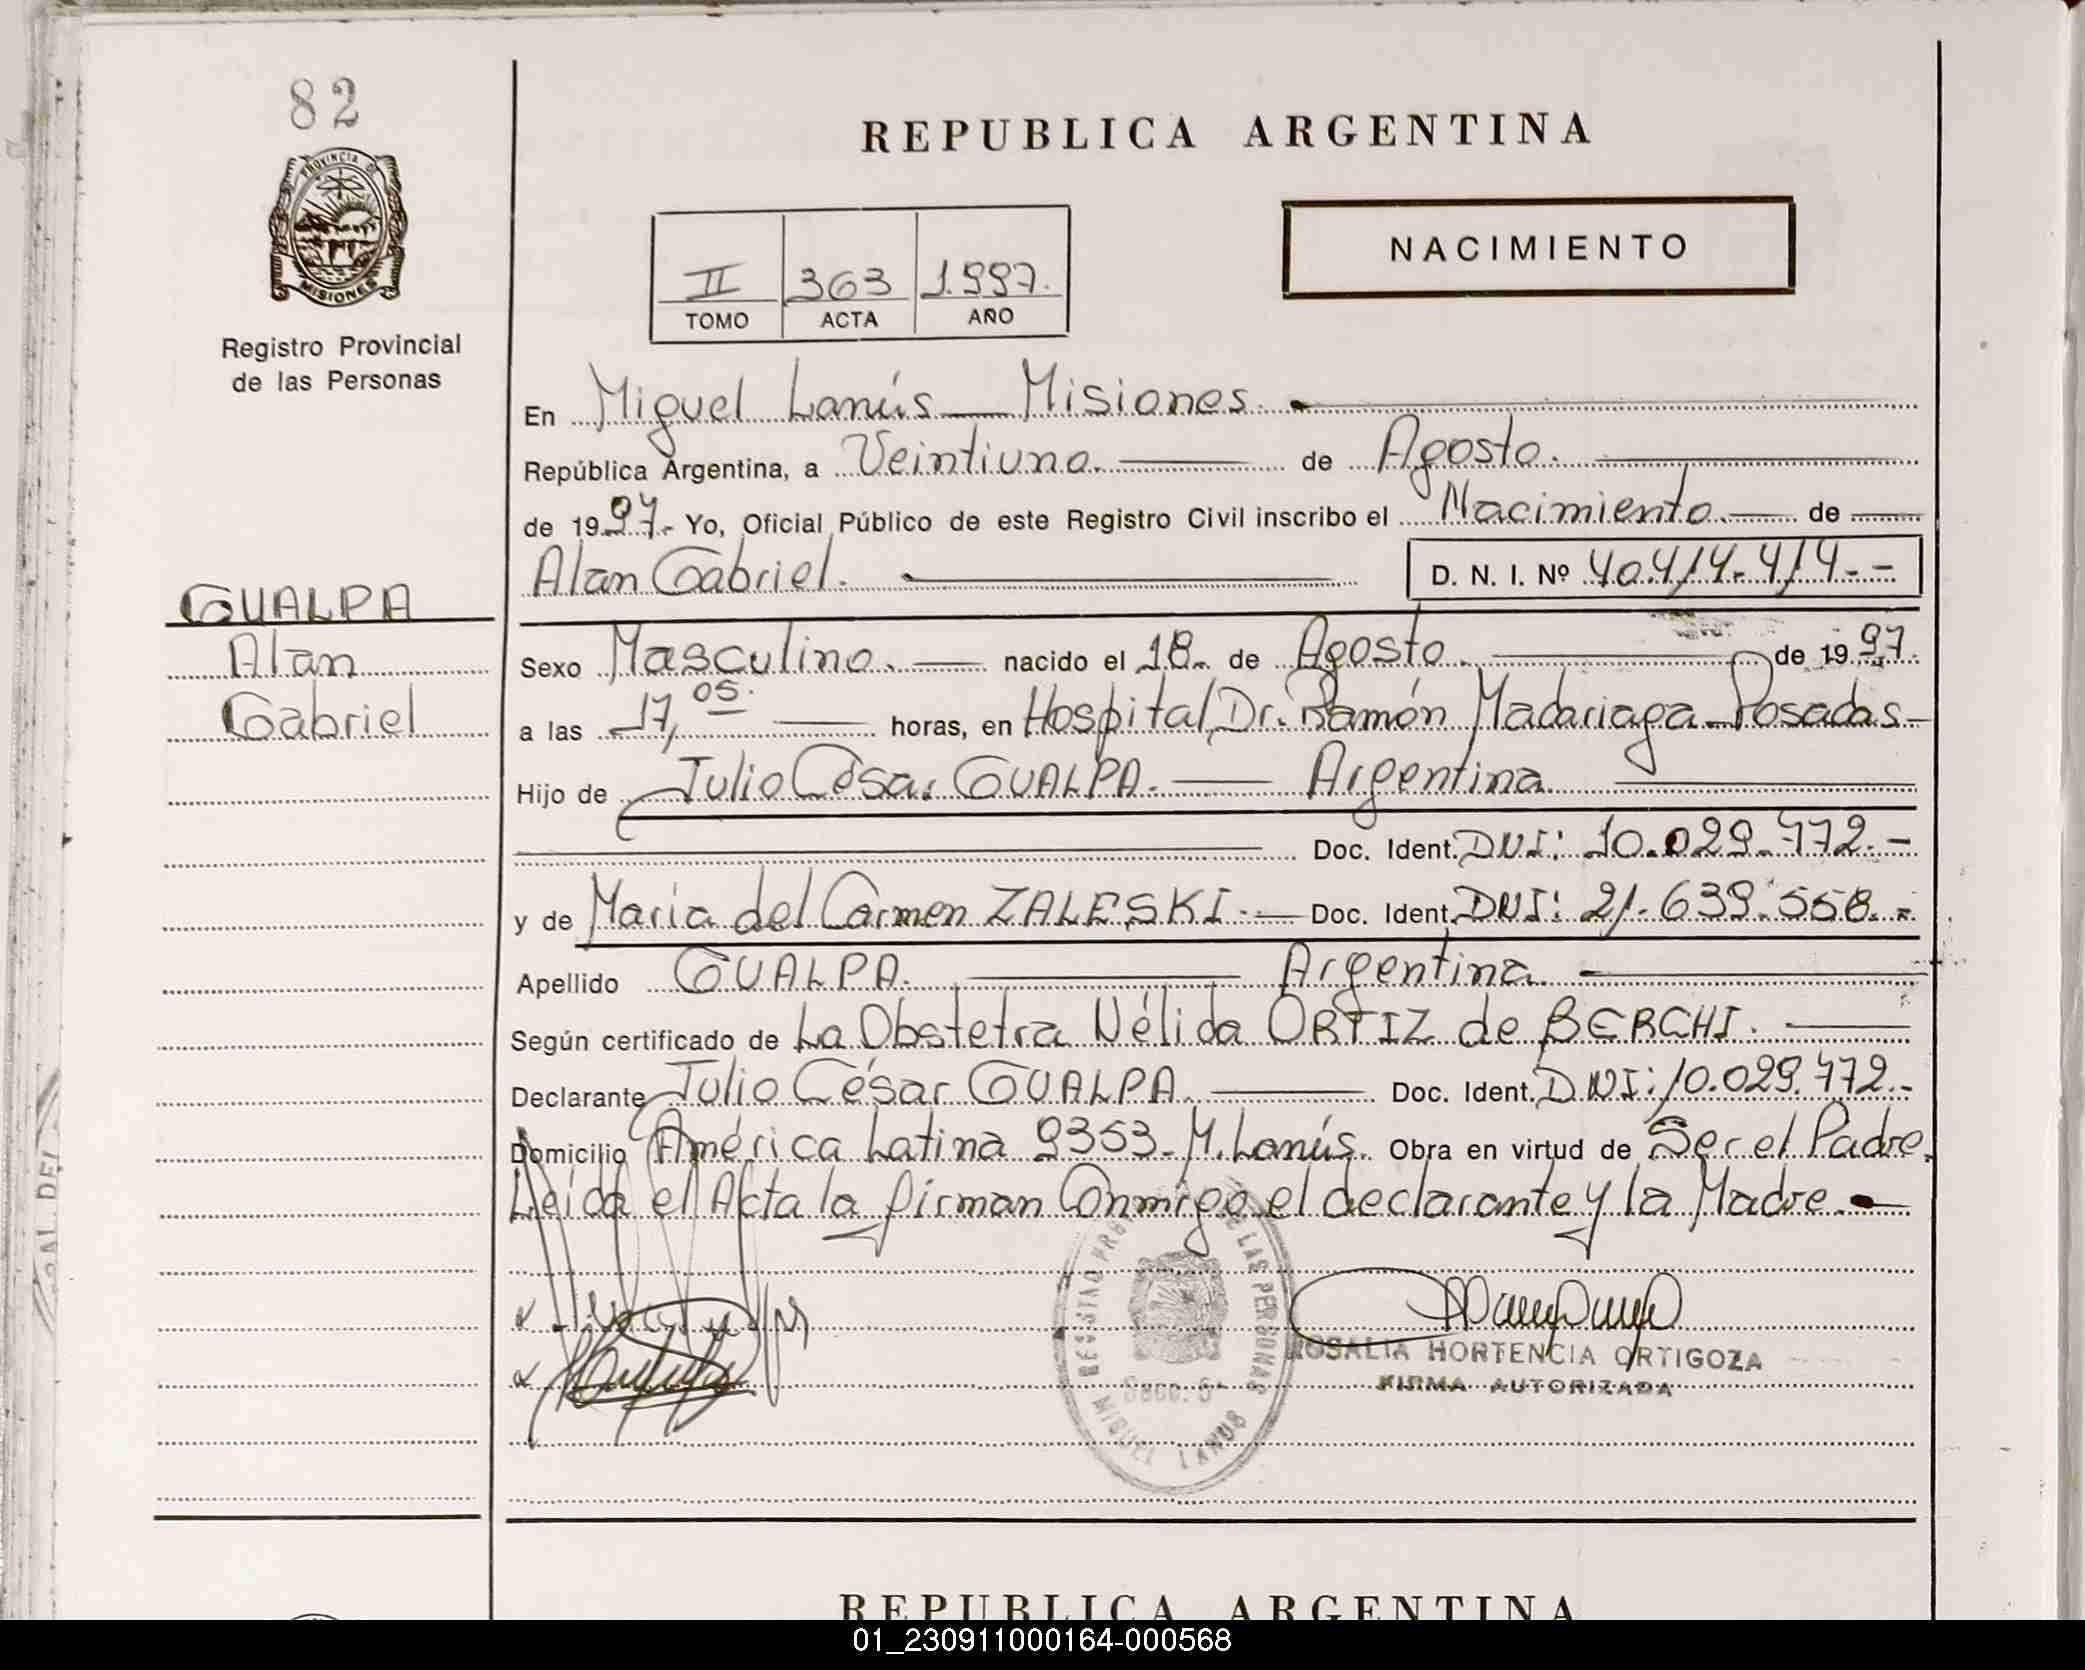 82
PROVINCIA DE
MISIONES
Registro Provincial
de las Personas
GUALPA
Alan
Gabriel
REPUBLICA ARGENTINA
NACIMIENTO
II 363 1.997.
TOMO ACTA AÑO
En Miguel Lanús Misiones.
República Argentina, a Veintiuno. de Agosto.
de 1997.- Yo, Oficial Público de este Registro Civil inscribo el Nacimiento de
Alan Gabriel. D. N. I. Nº 40.414.414.--
Sexo Masculino. nacido el 18. de Agosto. de 1997.
a las 17,05. horas, en Hospital Dr. Ramón Madariaga - Posadas-
Hijo de Julio César GUALPA. Argentina.
Doc. Ident. DNI: 10.029.772.-
y de María del Carmen ZALESKI.- Doc. Ident. DNI: 21.639.558.-
Apellido GUALPA. Argentina.
Según certificado de La Obstetra Nélida ORTIZ de BERCHI.
Declarante Julio César GUALPA. Doc. Ident. DNI: 10.029.772.-
Domicilio América Latina 9353- M. Lanús. Obra en virtud de Ser el Padre.
Leída el Acta la firman Conmigo el declarante y la Madre.
REGISTRO DE LAS PERSONAS
MIGUEL LANUS
ROSALIA HORTENCIA ORTIGOZA
FIRMA AUTORIZADA
REPUBLICA ARGENTINA
01_230911000164-000568